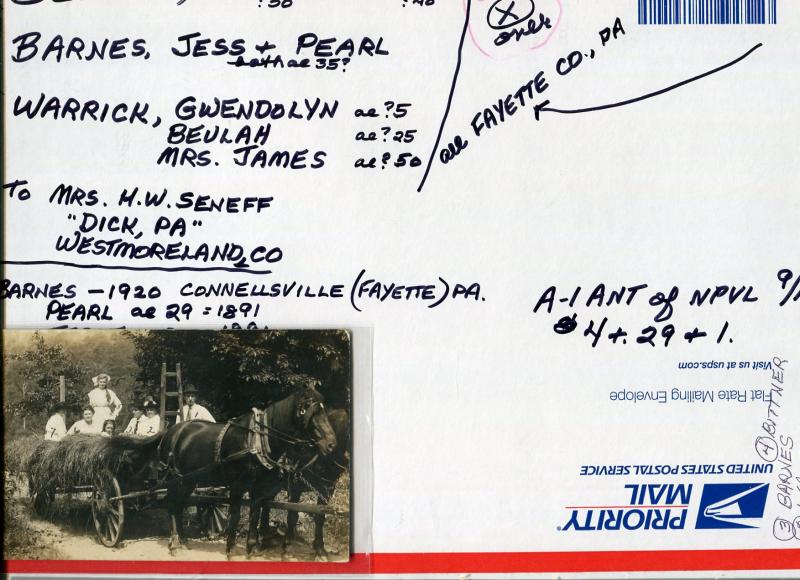 ?50 ?40
BARNES, JESS + PEARL
both ae 35?
WARRICK, GWENDOLYN ae ?5
BEULAH ae ?25
MRS. JAMES ae ? 50
TO MRS. H.W. SENEFF
"DICK, PA"
WESTMORELAND, CO
BARNES - 1920 CONNELLSVILLE (FAYETTE) PA.
PEARL ae 29 = 1891
X
over
all FAYETTE CO., PA
A-1 ANT of NPVL 9/
$4 + .29 + 1.
Visit us at usps.com
Flat Rate Mailing Envelope
UNITED STATES POSTAL SERVICE
PRIORITY
MAIL
4 BITTNER
3 BARNES